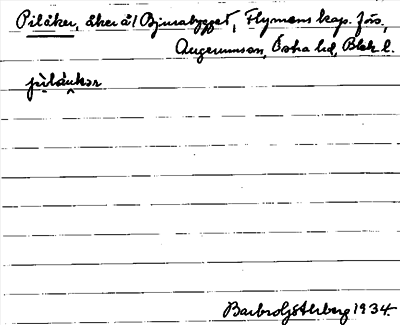 Pilåker, åker å / Bjurabygget, Flymens kap. förs,
Augerumssn, Östra hd, Blek l.
pìlåukər
Barbro Göthberg 1934.